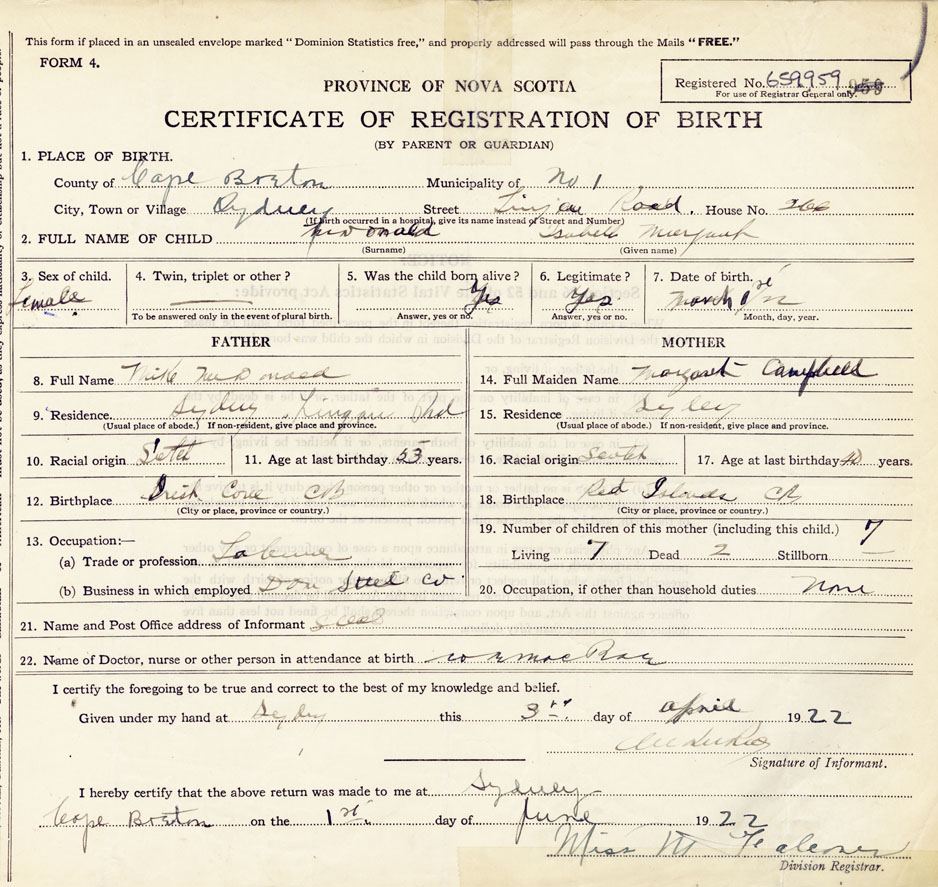 This form if placed in an unsealed envelope marked "Dominion Statistics free," and properly addressed will pass through the Mails "FREE."
FORM 4.
Registered No. 659959
For use of Registrar General only.
PROVINCE OF NOVA SCOTIA
CERTIFICATE OF REGISTRATION OF BIRTH
(BY PARENT OR GUARDIAN)
1. PLACE OF BIRTH.
County of Cape Breton Municipality of No 1
City, Town or Village Sydney Street Lingan Road. House No.
(If birth occurred in a hospital, give its name instead of Street and Number)
2. FULL NAME OF CHILD McDonald Isabell Margaret
(Surname) (Given name)
3. Sex of child. 4. Twin, triplet or other? 5. Was the child born alive? 6. Legitimate? 7. Date of birth.
Female — Yes Yes March 1st 22
To be answered only in the event of plural birth. Answer, yes or no. Answer, yes or no. Month, day, year.
FATHER MOTHER
8. Full Name Mike McDonald 14. Full Maiden Name Margaret Campbell
9. Residence. Sydney Lingan Rd 15. Residence Sydney
(Usual place of abode.) If non-resident, give place and province. (Usual place of abode.) If non-resident, give place and province.
10. Racial origin 11. Age at last birthday 53 years. 16. Racial origin Scotch 17. Age at last birthday years.
12. Birthplace Irish Cove CB 18. Birthplace Red Islands CB
(City or place, province or country.) (City or place, province or country.)
13. Occupation:— 19. Number of children of this mother (including this child.) 7
(a) Trade or profession Laborer Living 7 Dead 2 Stillborn —
(b) Business in which employed Dom Steel Co 20. Occupation, if other than household duties None
21. Name and Post Office address of Informant
22. Name of Doctor, nurse or other person in attendance at birth MacRae
I certify the foregoing to be true and correct to the best of my knowledge and belief.
Given under my hand at Sydney this 3rd. day of April 1922
Signature of Informant.
I hereby certify that the above return was made to me at Sydney
Cape Breton on the 1st. day of June 1922
Miss M Falconer
Division Registrar.